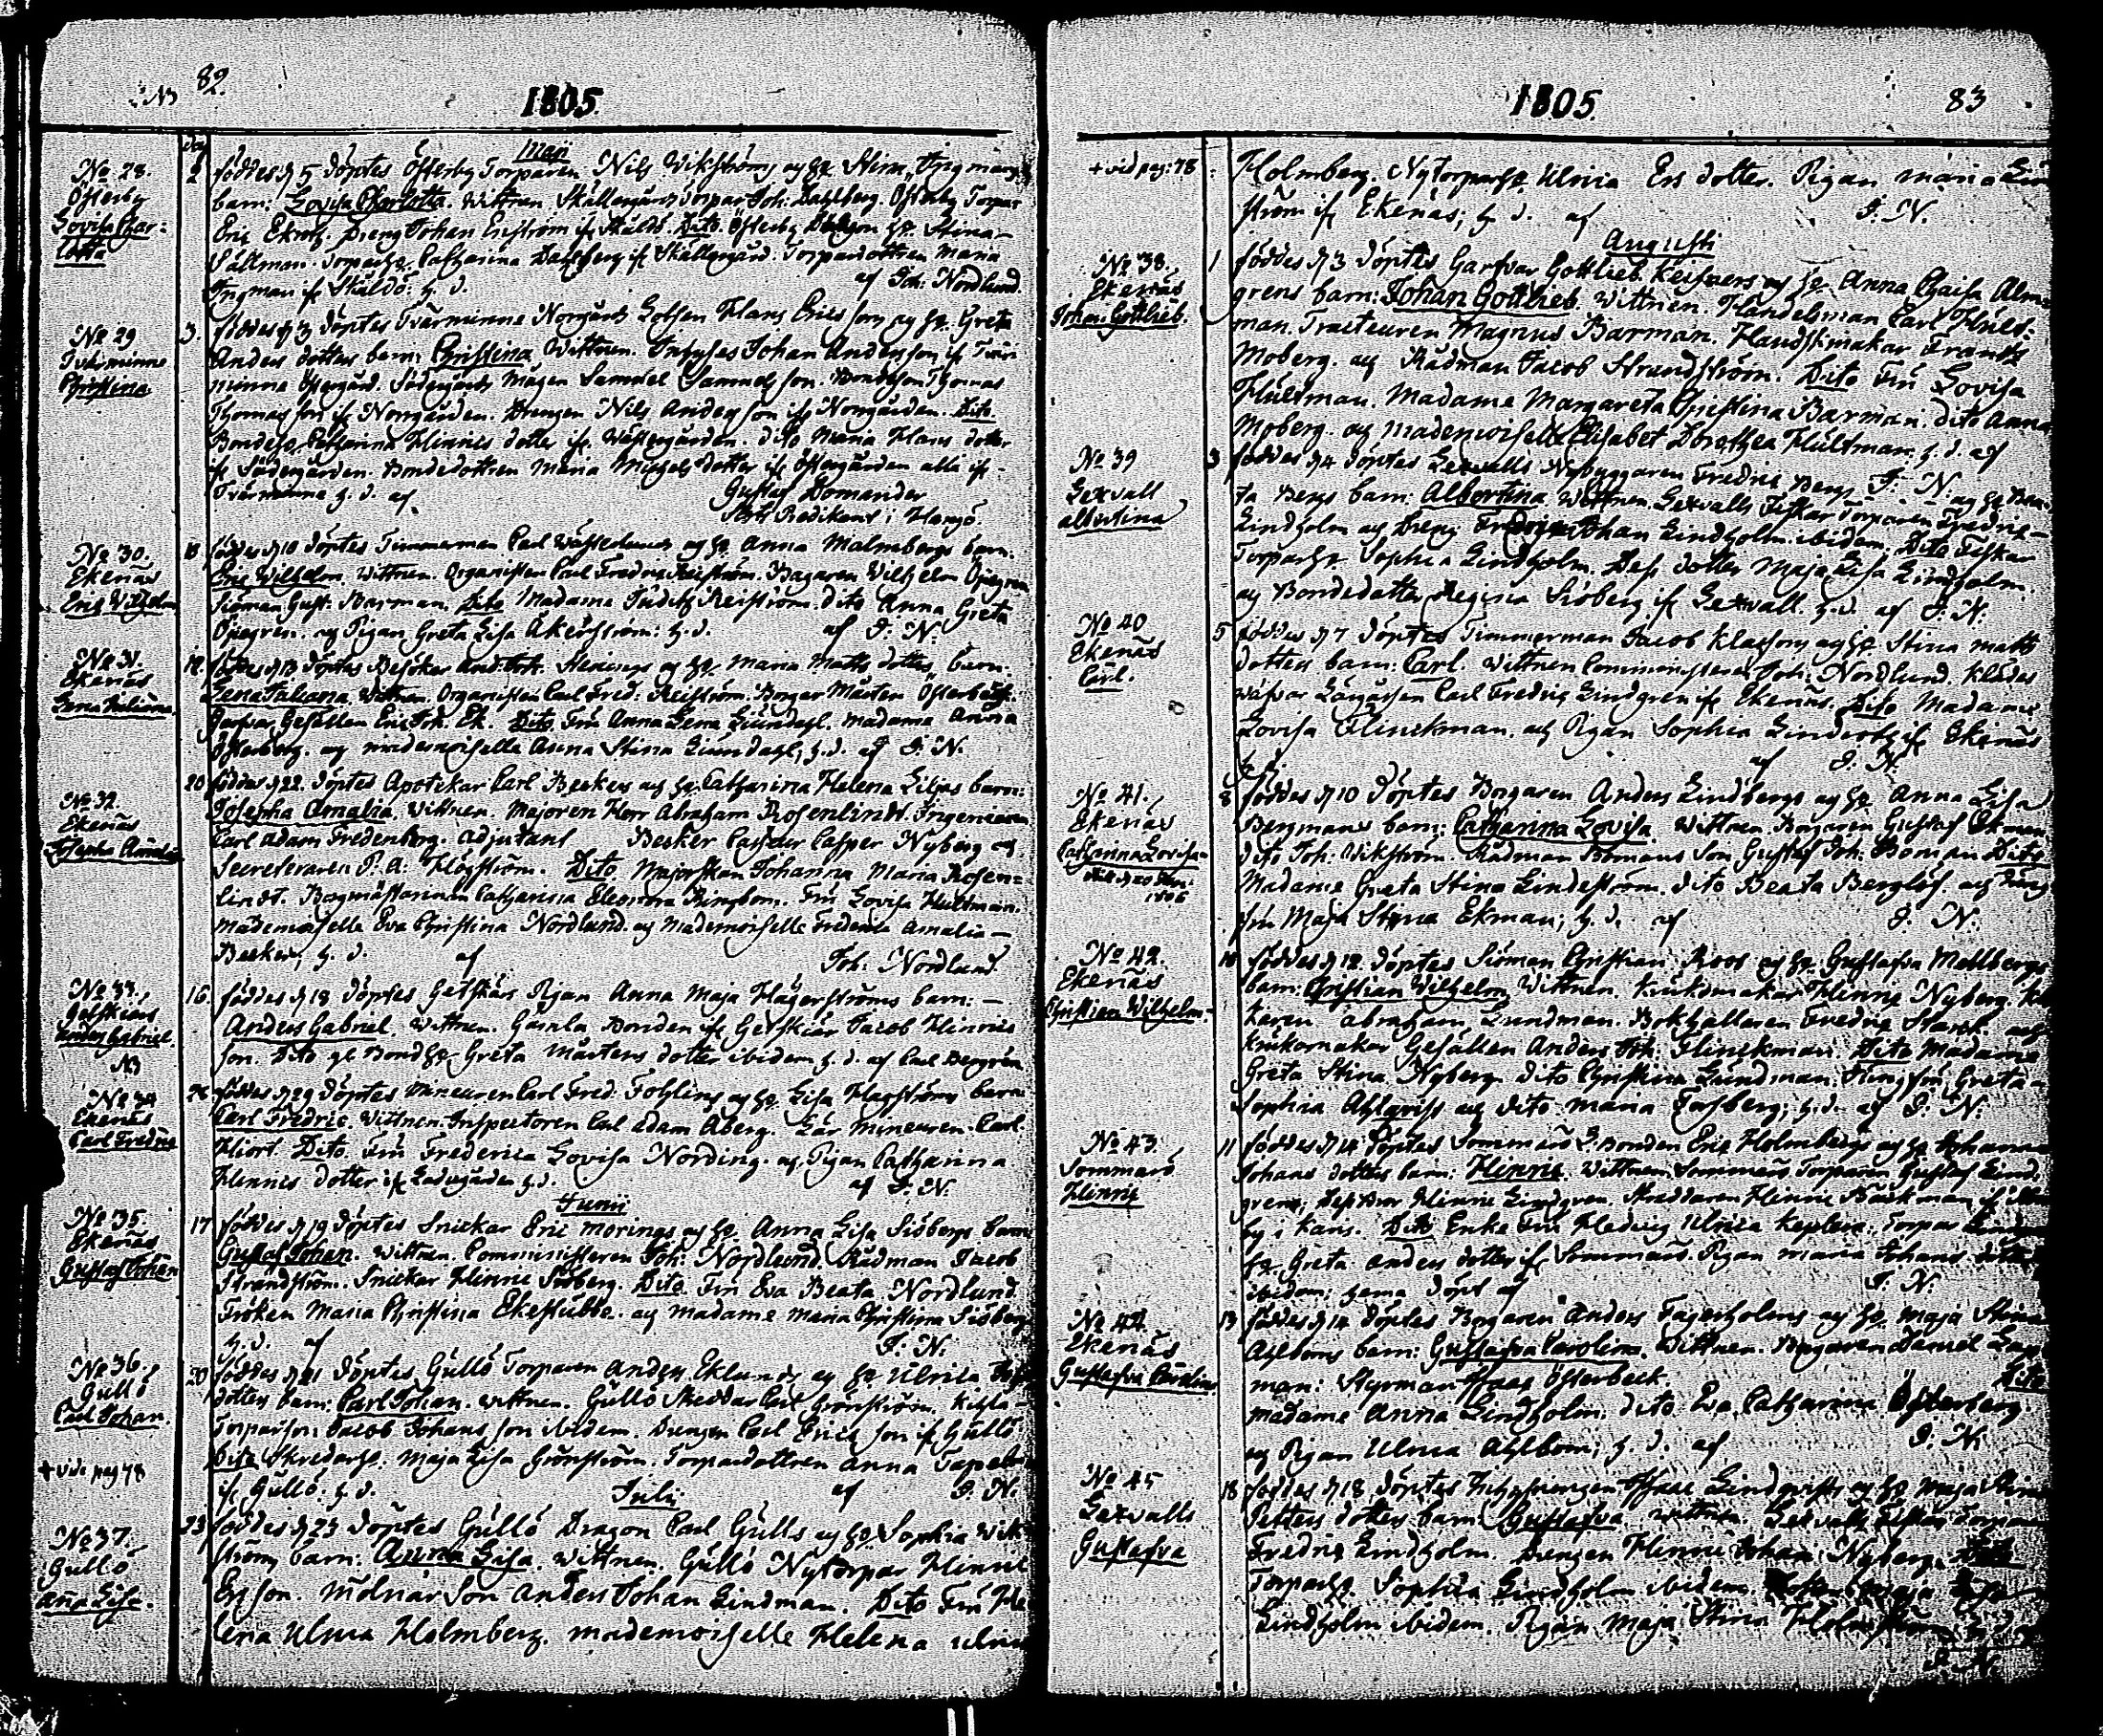 82.
NB
1805.
Maji
No 28.
Österby
Lovisa Char:
lotta
2 föddes d 5 döptes Österby Torparen Nils Wikströms og h. Stina Ingmans
barn: Lovisa Charlotta. Wittnen Skällargårds Torpar Joh: Dahlberg. Österby Torpar
Eric Ekrot. Dreng Johan Enström if Skåldö. Dito Österby h. Stina
Sallman. Torparh. Catharina Dahlberg if Skällargård. Torpardottren Maria
Ingman if Skåldö: h. d. af Joh: Nordlund.
No 29
Tvärminne
Christina
3. föddes d 3 döptes Tvärminne Norgårds Hans Ericsson og h. Greta
Anders dotters barn: Christina Wittnen. Johan Andersson if Tvär
minne Östergård. Södergårds Mågen Samuel Samuelsson. Bondeson Thomas
Thomasson if Norrgården. Drengen Nils Andersson if Norrgården. Dito
Bondeh. Catharina Hinrics dotter if Wästergården. dito Maria Hans dotter
if Södergården. Bondedottren Maria Michels dotter if Östergården alla if
Tvärminne h. d. af Gustaf Domander
Predikant i Hangö.
No 30.
Ekenäs
Eric Wilhelm
föddes d 10 döptes Timmerman Carl Wästerlunds og h. Anna Malmbergs barn:
Eric Wilhelm. Wittnen. Organisten Carl Fredric Reiström. Bagaren Wilhelm Öjegren
Siöman Gust: Barman. Dito Madame Judith Reiström. Dito Anna Greta
Öjegren. og Pigan Greta Lisa Åkerström: h. d. af J. N.
No 31.
Ekenäs
Lena Juliana
12 föddes d 13 döptes Besökar og h. Maria Matts dotters barn.
Lena Juliana Wittnen. Organisten Carl Fred: Reiström. Borgar Mårten Österberg.
Garfvar Gesällen Eric Joh. Ek. Dito Fru Anna Lena Madame Anna
Österberg. og mademoiselle Anna Stina h. d. af J. N.
No 32.
Ekenäs
Josepha Amalia
20 föddes d 22. döptes Apotekar Carl Beckers og h. Catharina Helena Liljas barn:
Josepha Amalia. Wittnen. Majoren Herr Abraham Rosenlindt. Ingenieuren
Carl Adam Fredenberg. Adjutant Becker Cassör Casper Nyberg og
Secreteraren P. A: Högström. Dito. Majorskan Johanna Maria Rosen=
lindt. Borgmästarinnan Catharina Eleonora Ringbom. Fru Lovisa Hultman.
Mademoiselle Eva Christina Nordlund. og Mademoiselle Fredrica Amalia
Becker; h. d. af Joh: Nordlund.
No 33.
Getskiärs
Anders Gabriel.
NB
16 föddes d 18 döptes Getskärs Pigan Anna Maja Hägerströms barn:
Anders Gabriel. Wittnen. Gamla Bonden if Getskiär Jacob Hinrics
son. Dito gl Bondh. Greta Mårtens dotter ibidem h. d. af Carl Bergren
No 34
Ekenäs
Carl Fredric
föddes d 29 döptes Mineuren Carl Fred: Fohlins og h. Lisa Hagströms barn
Carl Fredric. Wittnen. Inspectoren Carl Adam Åberg. Lär Mineuren Carl
Hiort. Dito. Fru Frederica Lovisa Nording. og Pigan Catharina
Hinrics dotter if Ladugården h. d. af J. N.
Junii
No 35.
Ekenäs
Gustaf Johan
17 föddes d 19 döptes Snickar Eric Morings og h. Anna Lisa Siöbergs barn
Gustaf Johan. Wittnen. Comministeren Joh: Nordlund. Rådman Jacob
Strandström. Snickar Hinric Siöberg. Dito Fru Eva Beata Nordlund.
Fröken Maria Christina Ekestubbe. og Madame Maria Christina Siöberg
h. d. af J. N.
No 36.
Gullö
Carl Johan.
+ vide pag 78
20 föddes d 21 döptes Gullö Torparen Anders Eklunds og h. Ulrica
dotters barn: Carl Johan. Wittnen. Gullö Skreddar Carl Grönström.
Torparson Jacob Johansson ibidem. Drengen Carl Ericsson if Gullö
Dito Skredarh. Maja Lisa Grönström. Torpardottren Anna
if Gullö: h. d. af J. N.
Julii
No 37.
Gullö
Anna Lisa.
23 föddes d 23 döptes Gullö Dragon Carl Gulls og h. Sophia Wik
ströms barn: Anna Lisa. Wittnen. Gullö Nytorpar Hinric
Ersson. Molnär Son Anders Johan Lindman. Dito Fru He
lena Ulrica Holmberg. Mademoiselle Helena Ulrica
1805.
83
+ vid pag: 78
Holmberg. Nytorparh. Ulrica Ers dotter. Pigan Maria
ström if Ekenäs; h. d. af J. N.
Augusti
No 38.
Ekenäs
Johan Gottlieb.
1 föddes d 3 döptes Garfvar Gottlieb Keisners og h. Anna Chaisa Alm=
grens barn: Johan Gottlieb. Wittnen. Handelsman Carl Hult=
man. Tracteuren Magnus Barman. Handskmakar Frantz
Moberg. og Rådman Jacob Strandström. Dito Fru Lovisa
Hultman. Madame Margareta Christina Barman. Dito Anna
Moberg. og Mademoiselle Elisabet Dorothea Hultman, h. d. af
J. N.
No 39
Lexvall
Albertina
3 föddes d 4 döptes Lexvalls Nybyggaren Fredric Bergs og h. Brea
ta Bergs barn: Albertina Wittnen. Lexvalls Fiskar Torparen Fredric
Lindholm og Dreng Fredric Johan Lindholm ibidem. Dito Fiskar
Torparh. Sophia Lindholm. Dess dotter Maja Lisa Lindholm.
og Bondedotter Regina Siöberg if Lexvall. h. d. af J. N.
No 40
Ekenäs
Carl.
5 föddes d 7 döptes Timmerman Jacob Klassons og h. Stina Matts
dotters barn: Carl. Wittnen Comministeren Joh: Nordlund. Klädes
wäfvar Lärgåssen Carl Fredric Lindgren if Ekenäs. Dito Madame
Lovisa Flinckman. og Pigan Sophia if Ekenäs
h. d. af J. N.
No 41.
Ekenäs
Catharina Lovisa
1806
8 föddes d 10 döptes Borgaren Anders Lindbergs og h. Anna Lisa
Bergmans barn: Catharina Lovisa. Wittnen. Borgaren Gustaf Ekman
Dito Joh: Wikström. Rådman Bomans Son Gustaf Joh: Boman Dito.
Madame Greta Stina Lindeström. Dito Beata Berglöf. og Jung
fru Maja Stina Ekman; h. d. af J. N.
No 42.
Ekenäs
Christian Wilhelm
10 föddes d 12 döptes Siöman Christian Roos og h. Gustafva Mollbergs
barn: Christian Wilhelm. Wittnen. Krukomakar Hinric Nyberg.
Abraham Lundman. Bokhållaren Fredric Starck. og
Krukomakar Gesällen Anders Joh: Flinckman. Dito Madame
Greta Stina Nyberg. Dito Christina Lundman. Jungfru Greta
Sophia Ahlqvist og dito Maria Forsberg; h. d. af J. N.
No 43.
Sommarö
Hinric
11 föddes d 14 döptes Sommarö Bonden Eric Holmbergs og h. Johanna
Johans dotters barn: Hinric. Wittnen Sommarö Torparen Gustaf Lind
gren; Dess Bror Hinric Lindgren. Skreddaren Hinric Bäckman if
by i Karis. Dito Enke Fru Hedvig Ulrica Keplera. Torpar
h. Greta Anders dotter if Sommarö. Pigan Maria Johans dotter
ibidem; hema döpt af J. N.
No 44.
Ekenäs
Gustafva Carolina
13 föddes d 14 döptes Borgaren Anders Fagerholms og h. Maja Stina
Ahlboms barn: Gustafva Carolina. Wittnen. Borgaren Daniel
man: Styrman Isaac Österbeck. Dito
Madame Anna Lindholm; dito Eva Catharina Österberg
og Pigan Ulrica Ahlbom; h. d. af J. N.
No 45
Lexvalls
Gustafva
18 föddes d 18 döptes Isaac Lindqvists og h. Maja Stina
Petters dotters barn: Gustafva. Wittnen. Lexvalls Fiskar Torpar
Fredric Lindholm. Drengen Hinric Johan Nyberg. Dito
Torparh. Sophia Lindholm ibidem.
Lindholm ibidem. Pigan Maja Stina Holmström
J. N.